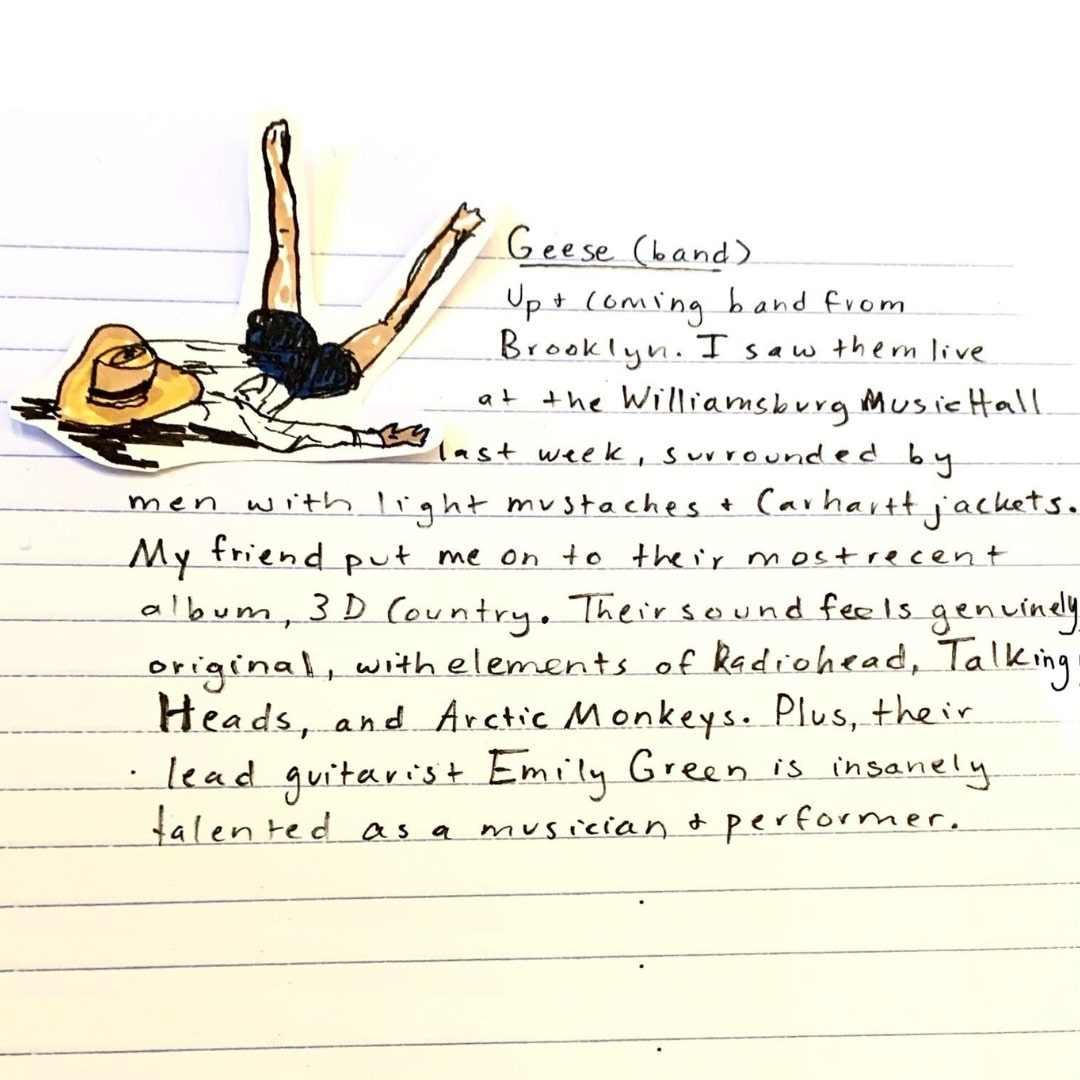 Geese (band)
Up + coming band from
Brooklyn. I saw them live
at the Williamsburg Music Hall
last week, surrounded by
men with light mustaches + Carhartt jackets.
My friend put me on to their most recent
album, 3D Country. Their sound feels genuinely
original, with elements of Radiohead, Talking
Heads, and Arctic Monkeys. Plus, their
lead guitarist Emily Green is insanely
talented as a musician + performer.